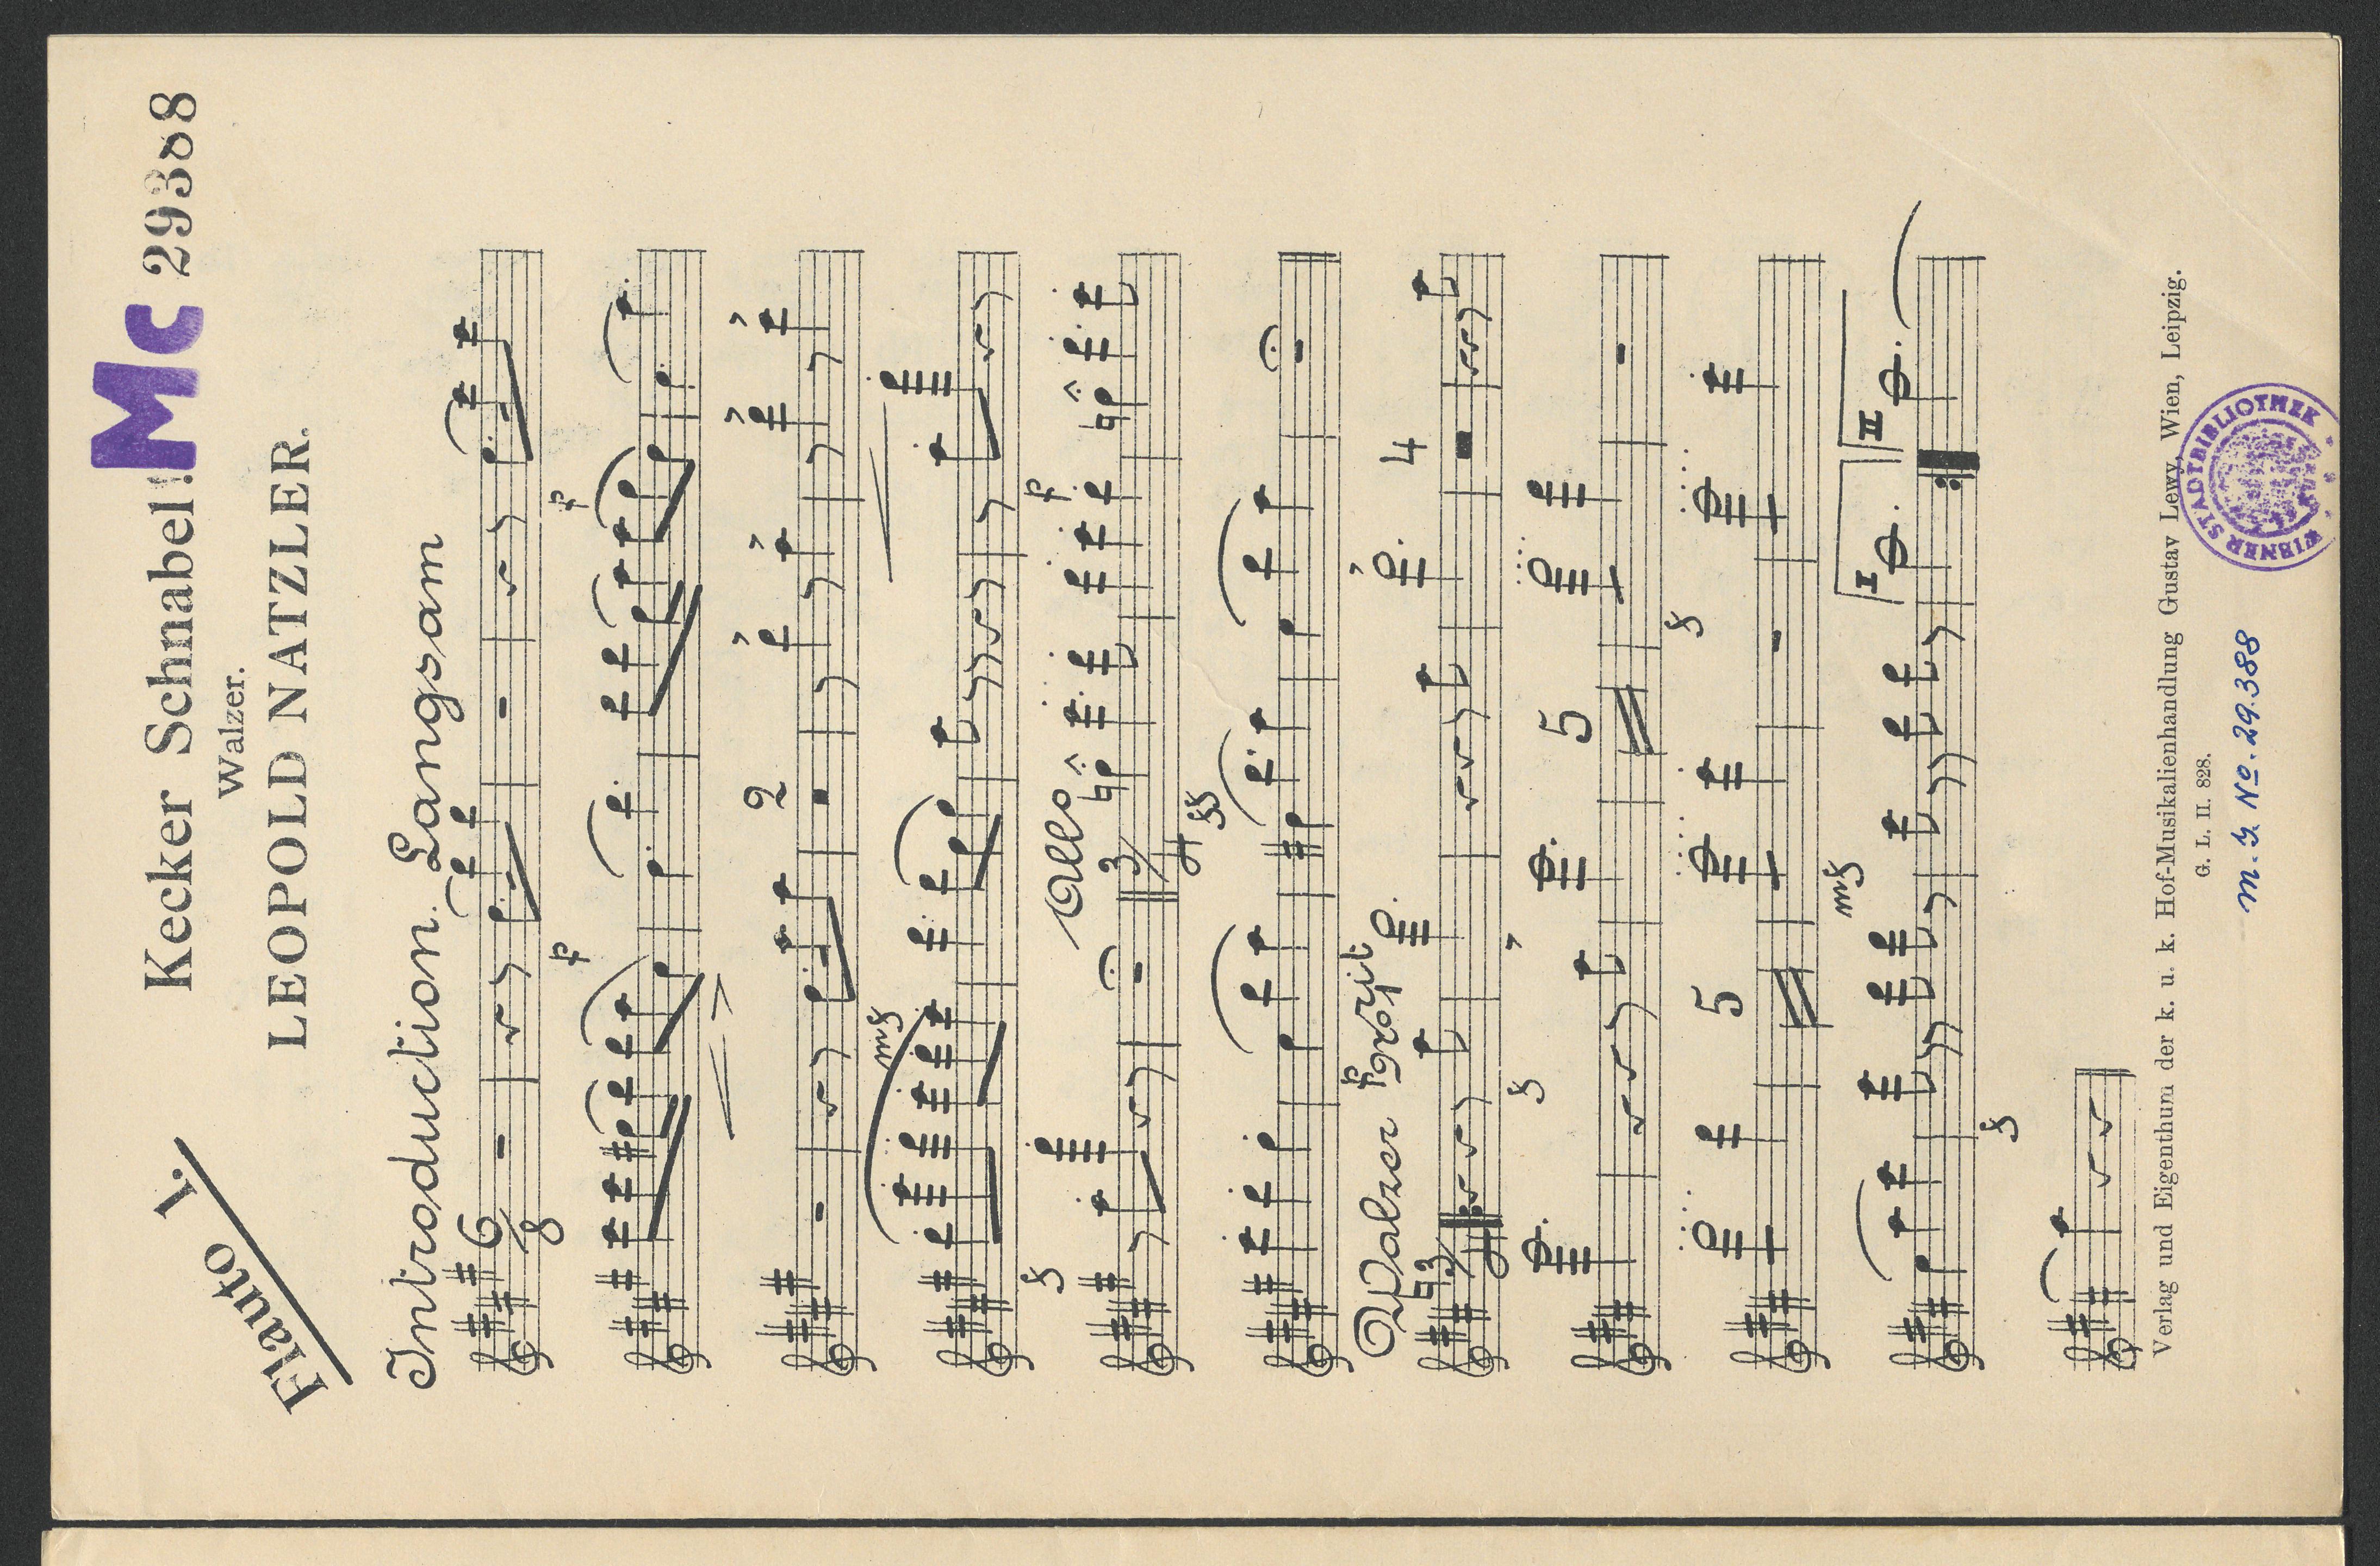 Flauto I.
Kecker Schnabel!
Mc 29388
Walzer.
LEOPOLD NATZLER.
Introduction. Langsam
6/8
p
p
2
mf
f
Allo
3/4
ff
p
Walzer
p
grazit
3/4
4
f
5
f
5
mf
I
II
f
Verlag und Eigenthum der k. u. k. Hof-Musikalienhandlung Gustav Lewy, Wien, Leipzig.
G. L. II. 828.
WIENER STADTBIBLIOTHEK
M. J. No. 29.388